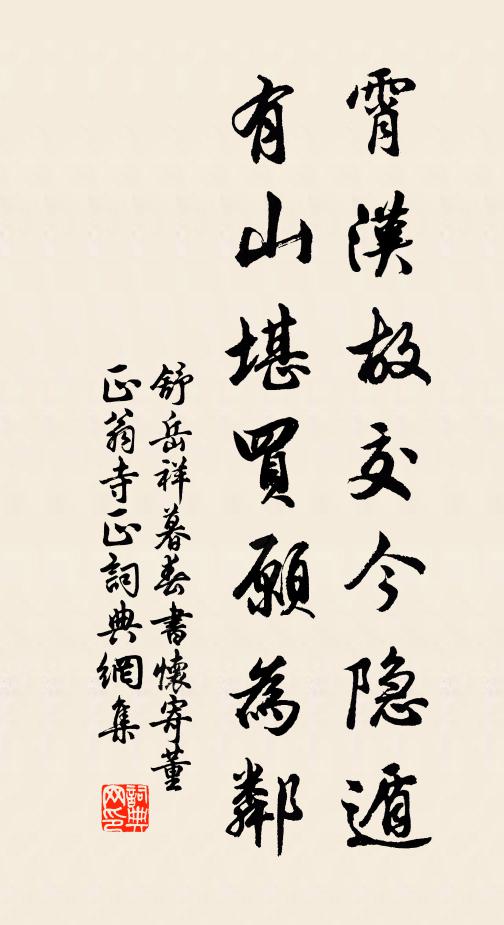 霄漢故交今隐遁
有山堪買願為鄰
舒岳祥暮春書懷寄董
正翁寺正詞典網集
詞典
网印